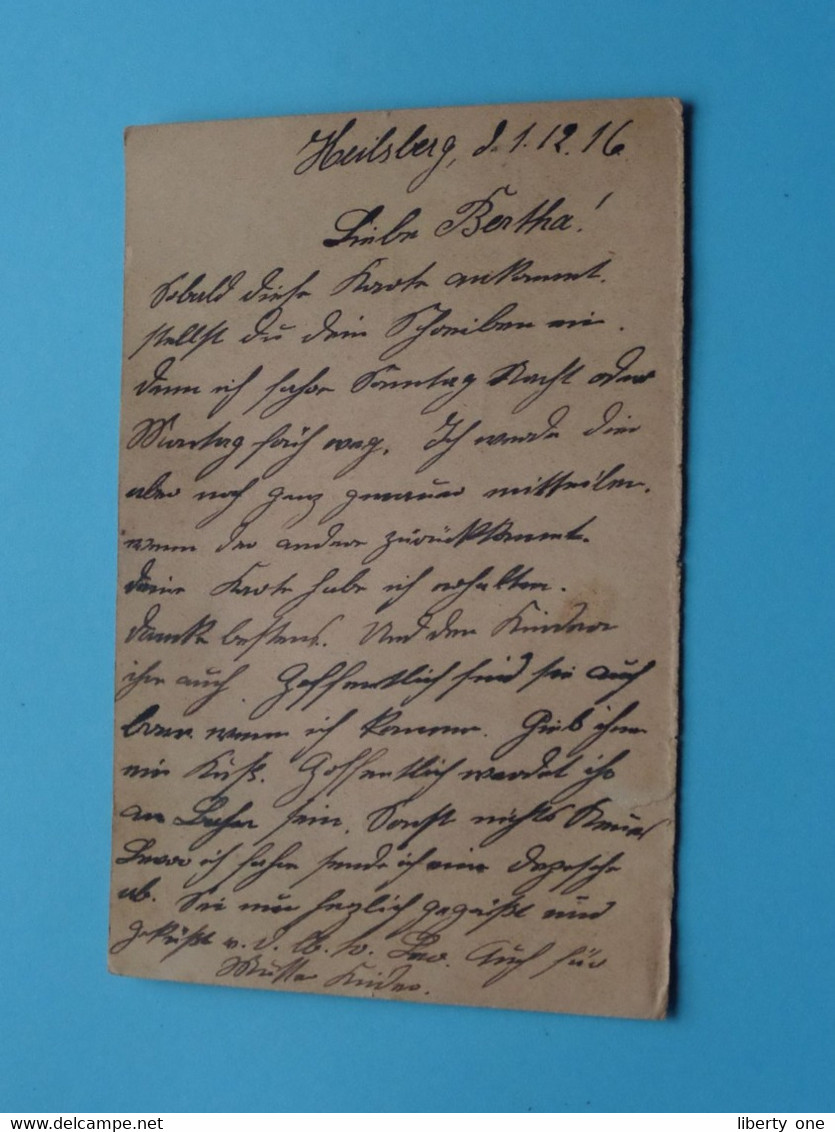 Heilsberg, d. 1.12.16
Liebe Bertha!
Sobald diese Karte ankommt.
stellst du dein Schreiben ein.
denn ich fahre Sonntag Nacht oder
Montag früh weg. Ich werde dir
aber noch ganz genauer mitteilen.
wenn der andere zurückkommt.
deine Karte habe ich erhalten.
danke bestens. Und den Kindern
ihre auch. Hoffentlich sind sie auch
brav wenn ich komme. Gieb ihnen
ein Kuß. Hoffentlich werdet ihr
an Bahn sein. Sonst nichts Neues
Bevor ich fahre sende ich eine Depesche
ab. Sei nun herzlich gegrüßt und
geküßt v. d. lb. Auch für
Mutter Kinder.
liberty one